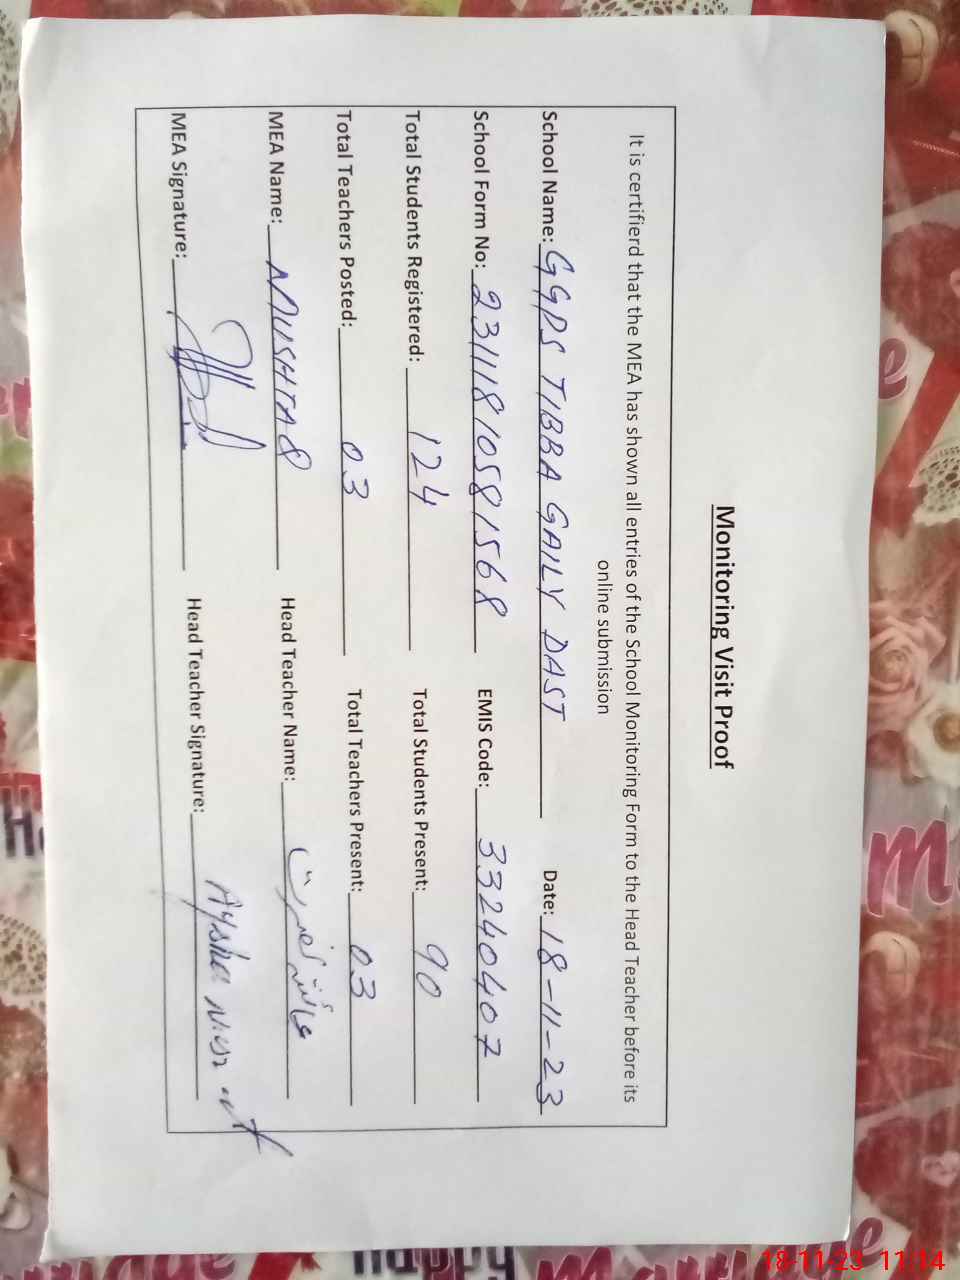 Monitoring Visit Proof
It is certifierd that the MEA has shown all entries of the School Monitoring Form to the Head Teacher before its
online submission
School Name: GGPS TIBBA GAILY DAST Date: 18-11-23
School Form No: 231118 1058 1568 EMIS Code: 33240407
Total Students Registered: 124 Total Students Present: 90
Total Teachers Posted: 03 Total Teachers Present: 03
MEA Name: MUSHTAQ Head Teacher Name: عائشہ نصرت
MEA Signature: Head Teacher Signature: Aysha
Happy
Marriage
18-11-23 11:14